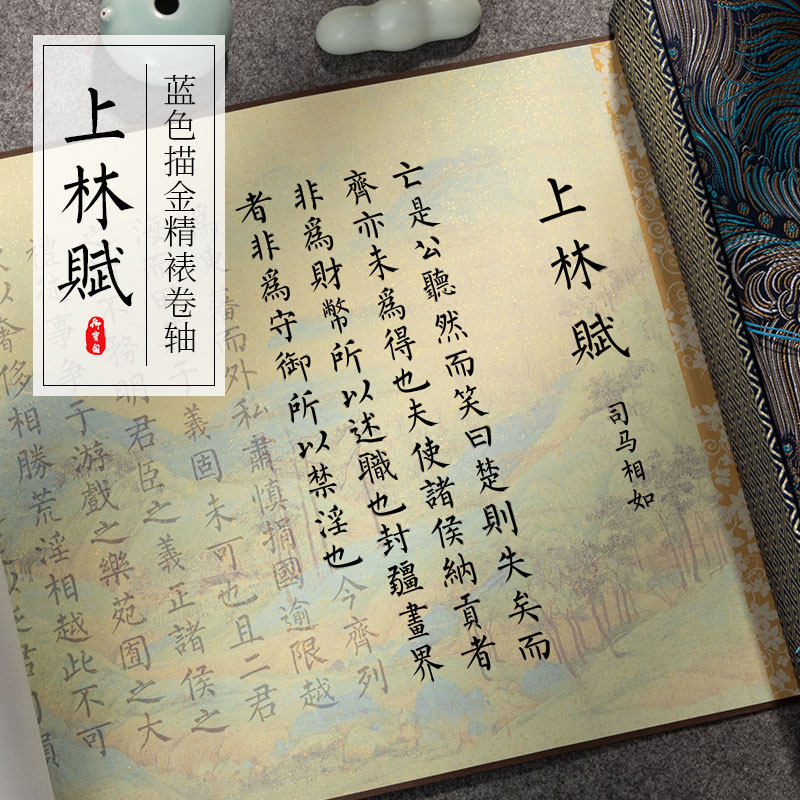 上林賦
蓝色描金精裱卷轴
上林賦
司马相如
亡是公聽然而笑曰楚則失矣而
齊亦未爲得也夫使諸侯納貢者
非爲財幣所以述職也封疆畫界
者非爲守御所以禁淫也今齊列
爲東藩而外私肅慎捐國逾限越
海而于義固未可也且二君
不務明君臣之義正諸侯之
禮徒事爭于游戲之樂苑囿之大
以奢侈相勝荒淫相越此不可